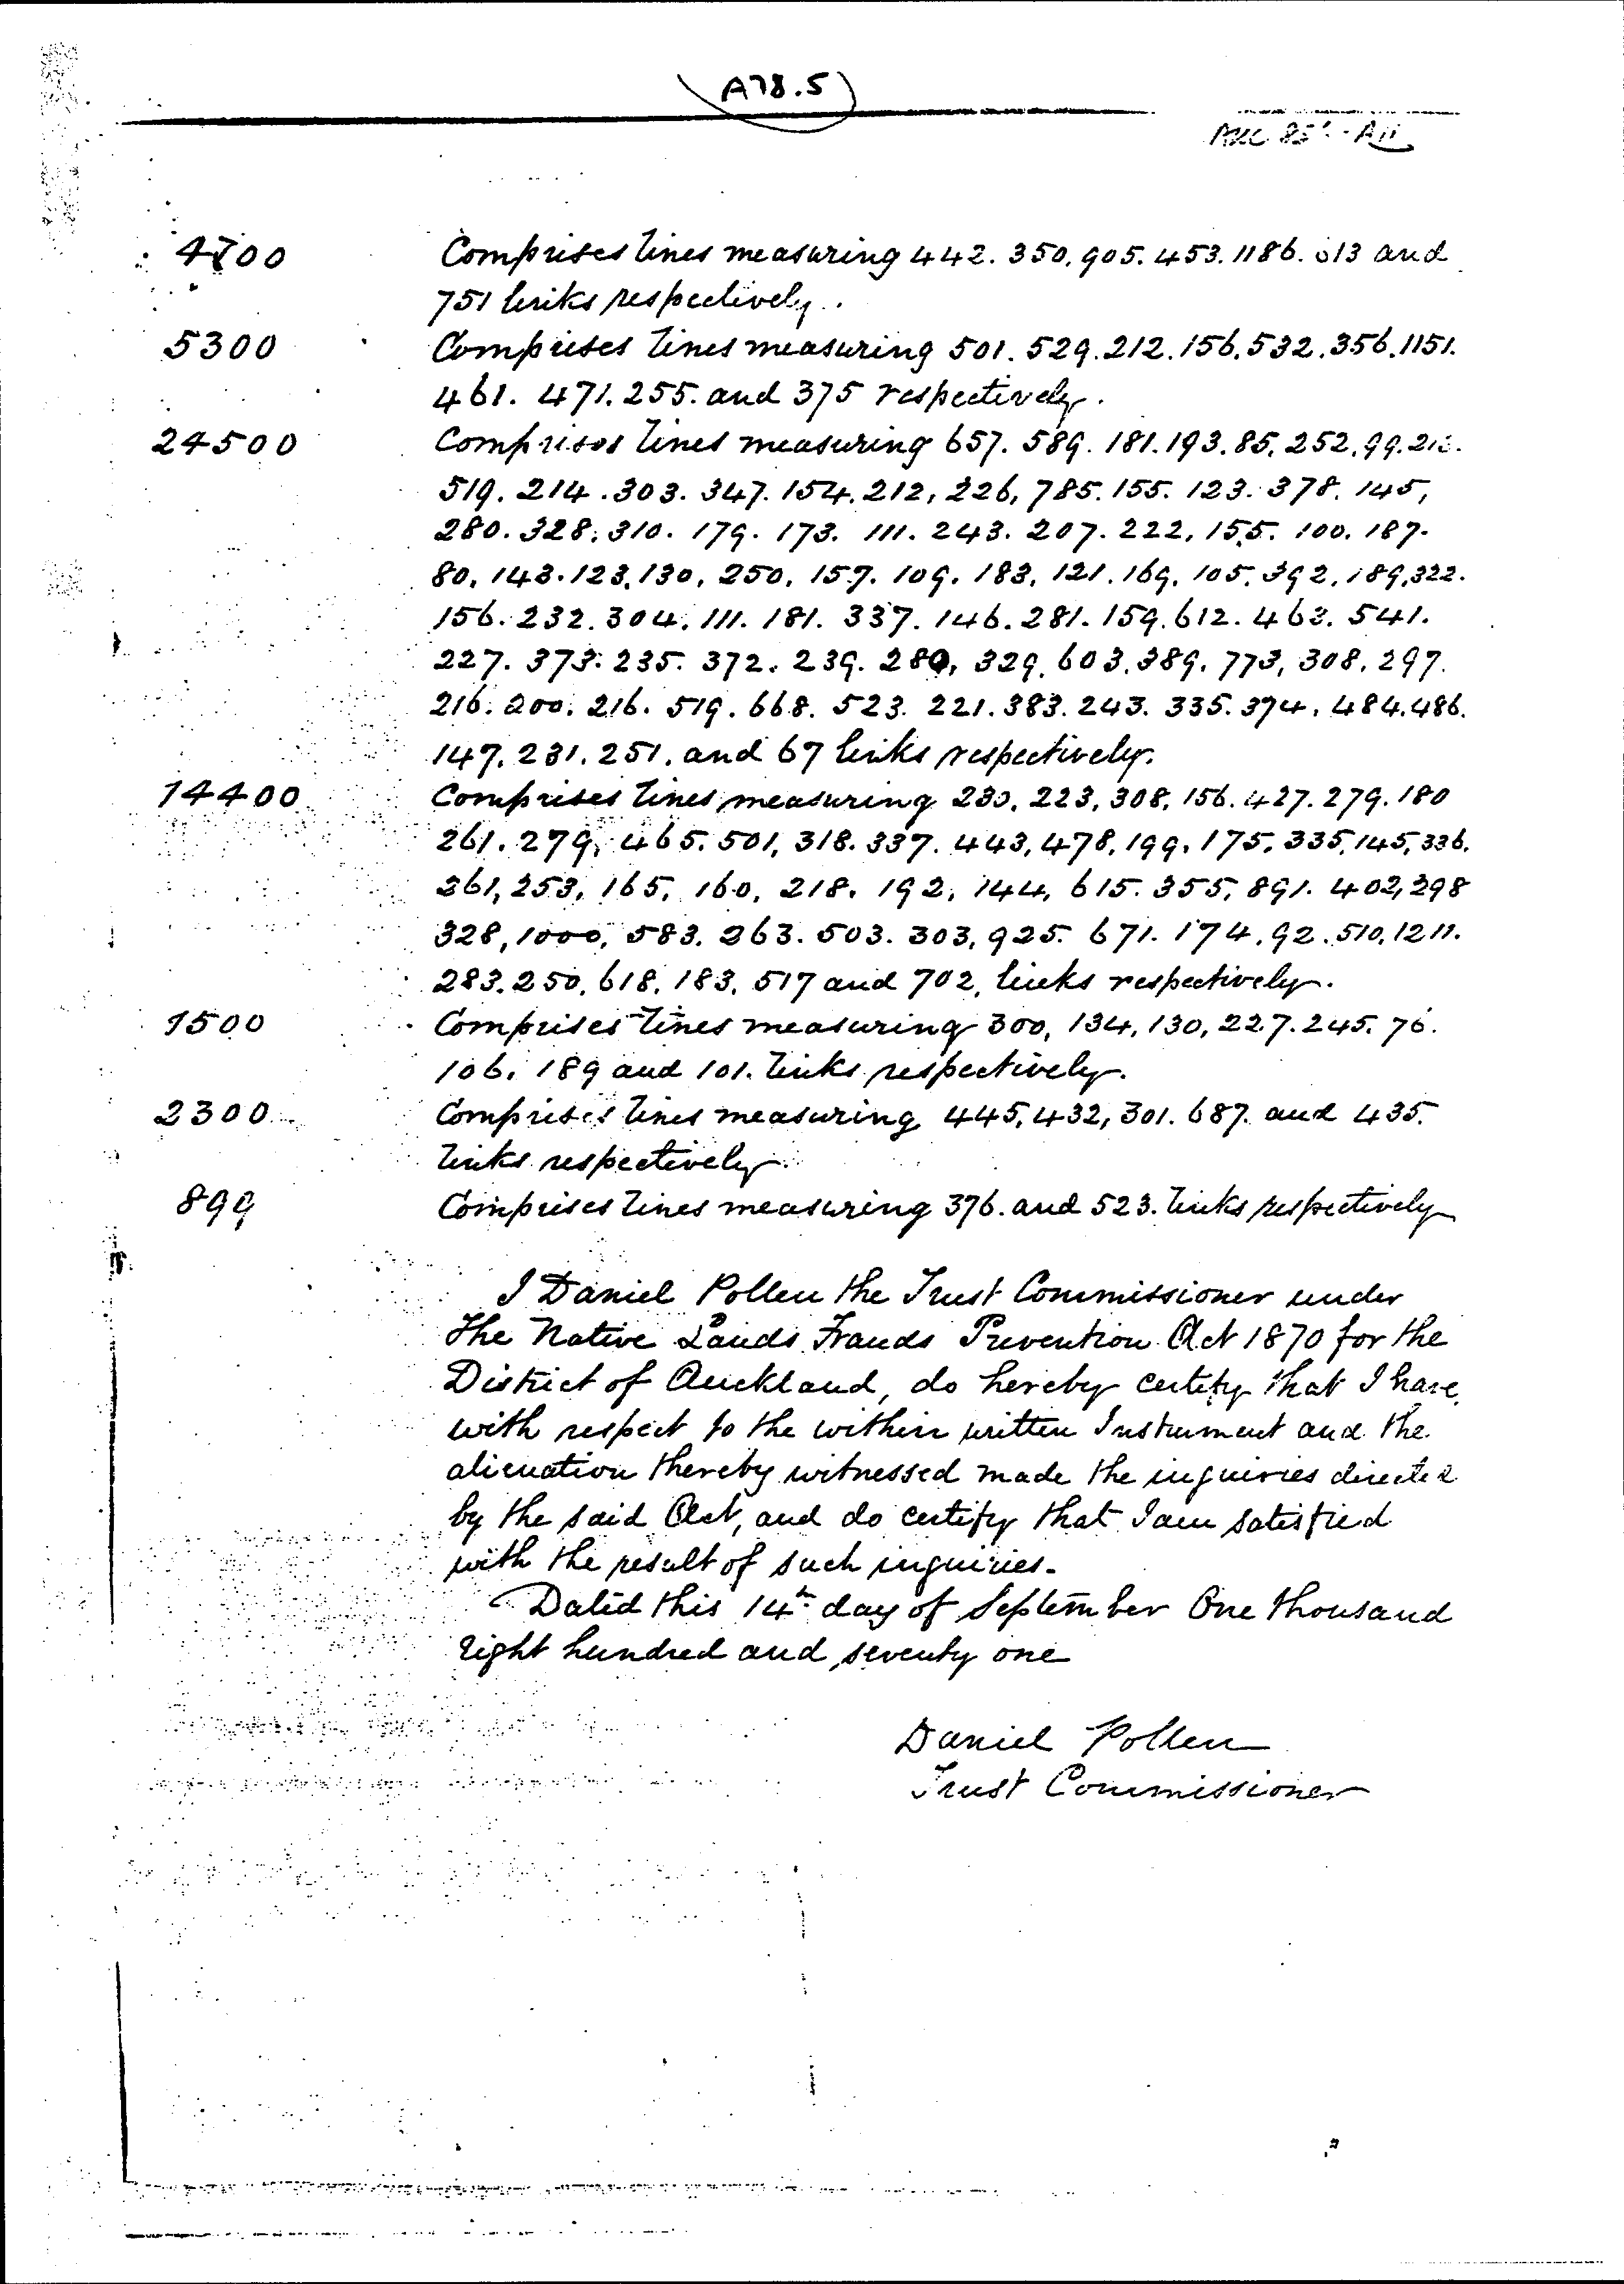 A78.5
4700 Comprises lines measuring 442. 350. 905. 453. 1186. 613 and
751 links respectively.
5300 Comprises lines measuring 501. 529. 212. 156. 532. 356. 1151.
461. 471. 255. and 375 respectively.
24500 Comprises lines measuring 657. 589. 181. 193. 85. 252. 99.
519. 214. 303. 347. 154. 212, 226, 785. 155. 123. 378. 145,
280. 328. 310. 179. 173. 111. 243. 207. 222, 155. 100. 187.
80, 143. 123, 130, 250, 157. 109. 183, 121. 169. 105. 392, 189, 322.
156. 232. 304. 111. 181. 337. 146. 281. 159. 612. 463. 541.
227. 373. 235. 372. 239. 280, 329. 603. 389. 773, 308. 297.
216. 200. 216. 519. 668. 523. 221. 383. 243. 335. 374. 484. 486.
147. 231. 251. and 67 links respectively.
14400 Comprises lines measuring 230, 223, 308, 156. 427. 279. 180
261. 279. 465. 501, 318. 337. 443, 478, 199. 175. 335, 145, 336.
261, 253, 165, 160, 218, 192, 144, 615. 355, 891. 402, 298
328, 1000, 583. 263. 503. 303, 925. 671. 174. 92. 510, 1211.
283. 250, 618, 183, 517 and 702, links respectively.
1500 Comprises lines measuring 300, 134, 130, 227. 245. 76.
106. 189 and 101. links respectively.
2300 Comprises lines measuring 445, 432, 301. 687. and 435.
links respectively
899 Comprises lines measuring 376. and 523. links respectively
I Daniel Pollen the Trust Commissioner under
The Native Lands Frauds Prevention Act 1870 for the
District of Auckland, do hereby certify that I have,
with respect to the within written Instrument and the
alienation thereby witnessed made the inquiries directed
by the said Act, and do certify that I am satisfied
with the result of such inquiries.
Dated this 14th day of September One thousand
eight hundred and seventy one
Daniel Pollen
Trust Commissioner